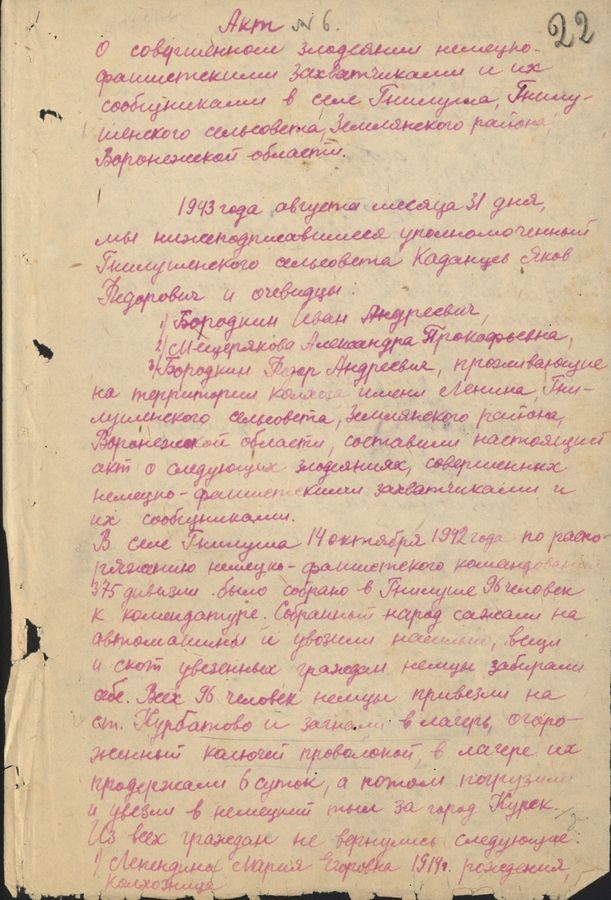 Акт № 6.
22
О совершенном злодеянии немецко-
фашистскими захватчиками и их
сообщниками в селе Гнилуша, Гнилу-
шенского сельсовета, Землянского района,
Воронежской области.
1943 года августа месяца 31 дня,
мы нижеподписавшиеся уполномоченный
Гнилушенского сельсовета Каданцев Яков
Федорович и очевидцы:
1) Бородкин Иван Андреевич,
2) Мещерякова Александра Прокофьевна,
3) Бородкин Федор Андреевич, проживающие
на территории колхоза имени Ленина, Гни-
лушенского сельсовета, Землянского района,
Воронежской области, составили настоящий
акт о следующих злодеяниях, совершенных
немецко-фашистскими захватчиками и
их сообщниками.
В селе Гнилуша 14 октября 1942 года по распо-
ряжению немецко-фашистского командования
375 дивизии было собрано в Гнилуше 96 человек
к комендатуре. Собранный народ сажали на
автомашины и увозили, вещи
и скот увезенных граждан немцы забирали
себе. Всех 96 человек немцы привезли на
ст. Курбатово и загнали в лагерь, огоро-
женный колючей проволокой, в лагере их
продержали 6 суток, а потом погрузили
и увезли в немецкий тыл за город Курск.
Из всех граждан не вернулись следующие:
1) Лепендина Мария Егоровна 1914 г. рождения,
колхозница